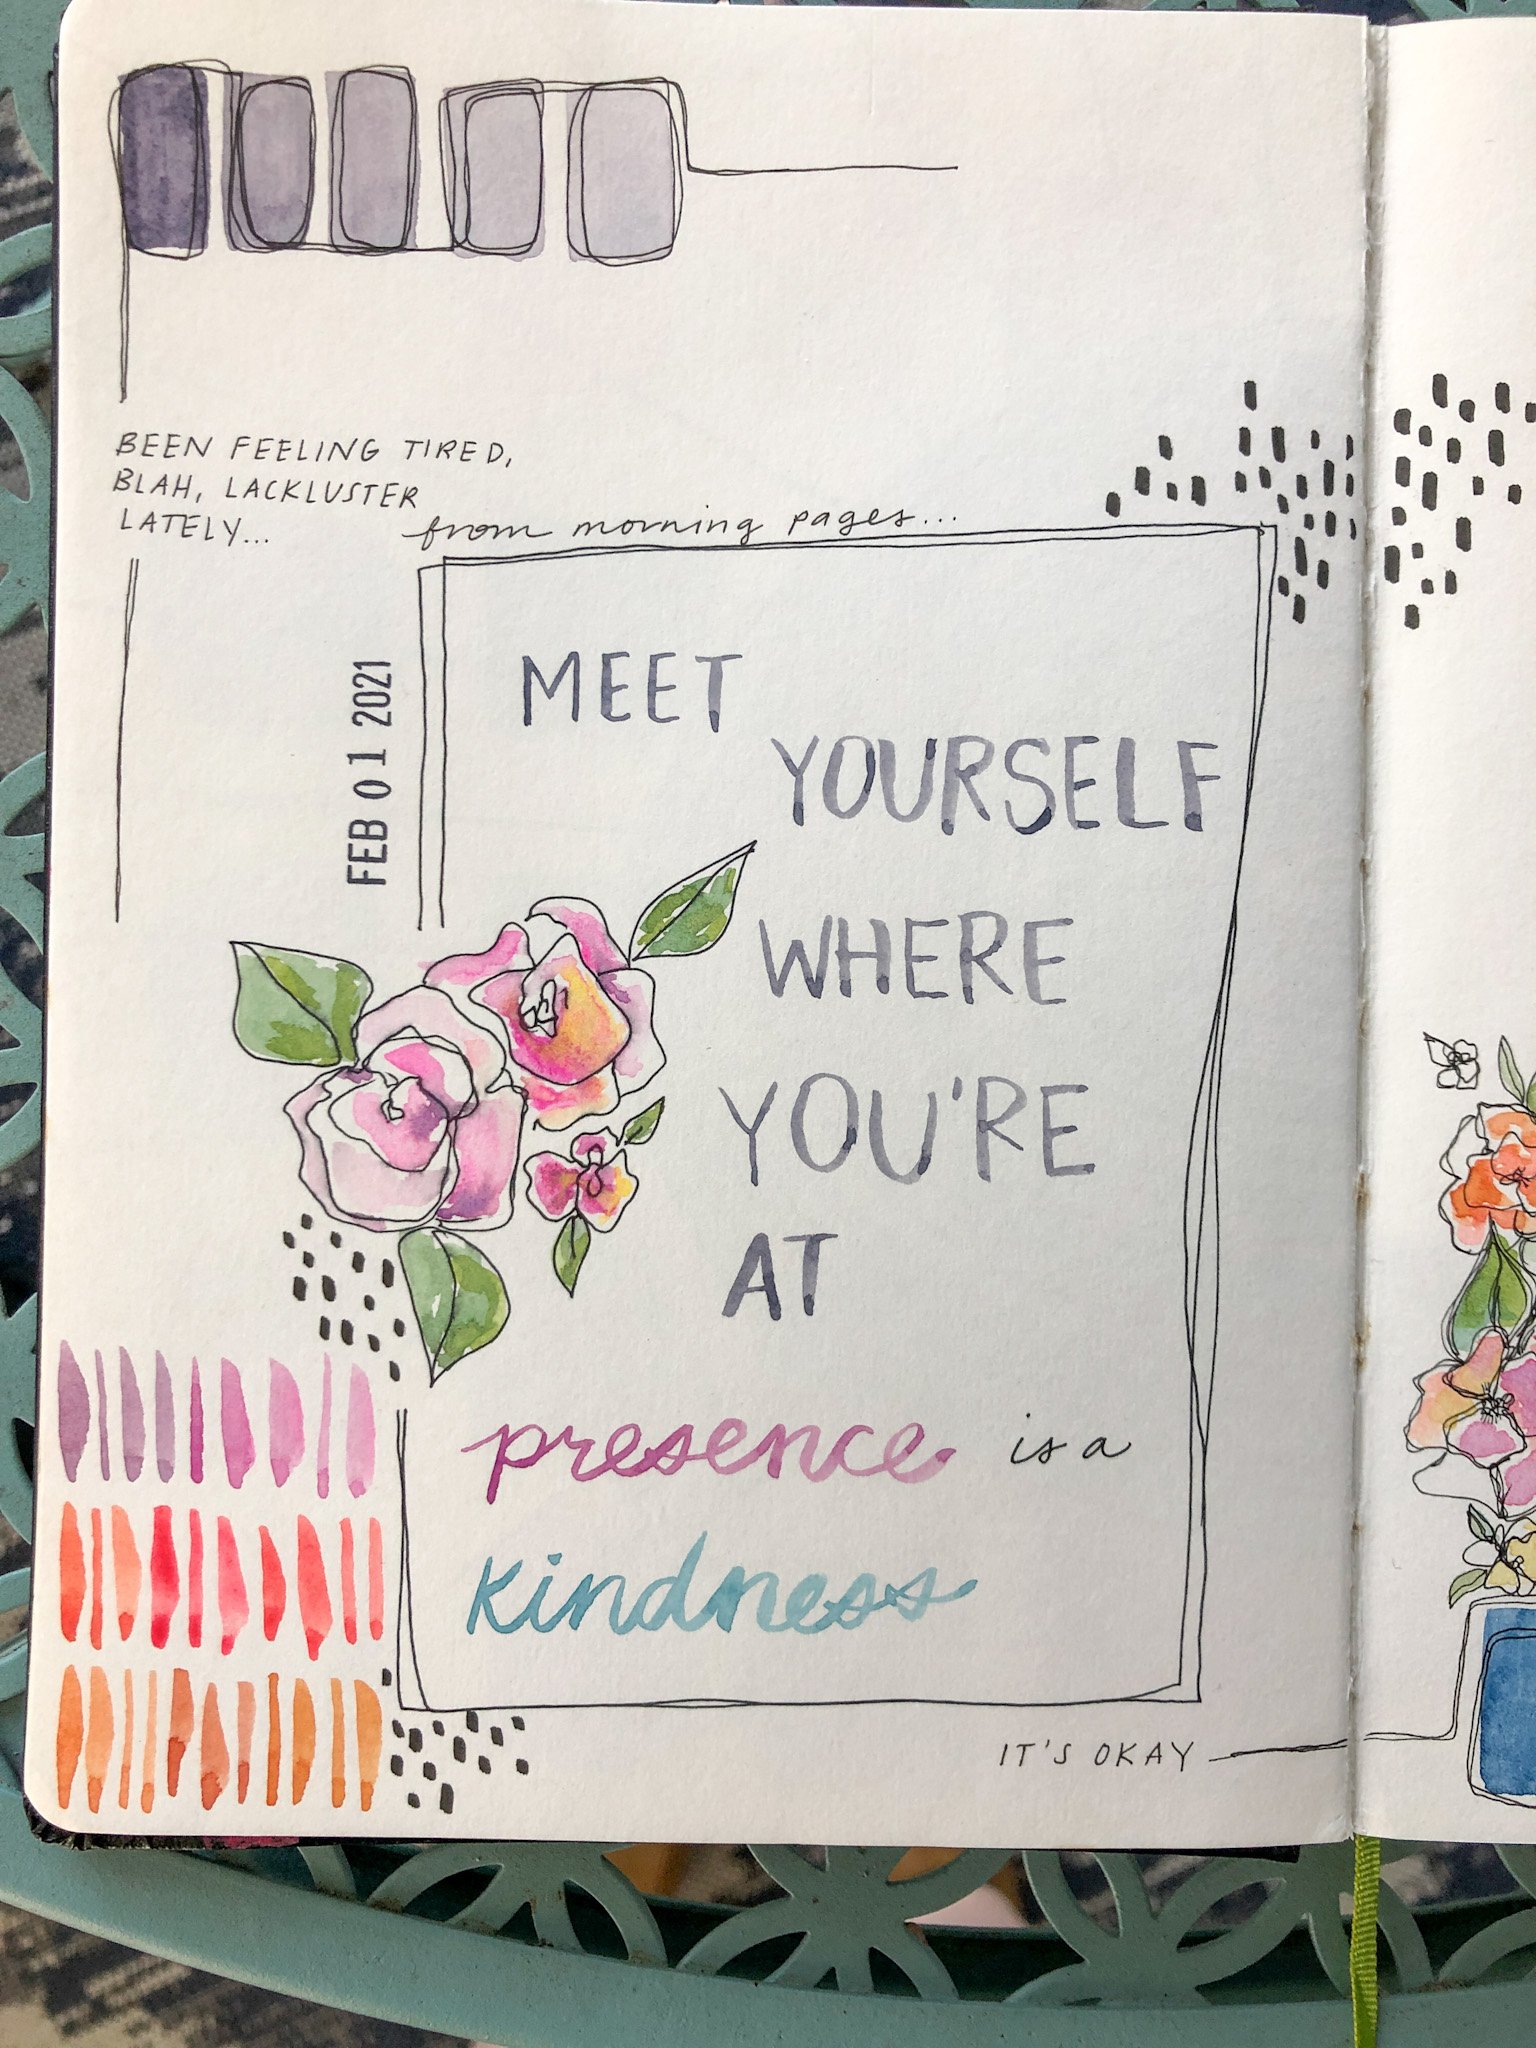 BEEN FEELING TIRED,
BLAH, LACKLUSTER
LATELY...
from morning pages...
FEB 01 2021
MEET
YOURSELF
WHERE
YOU'RE
AT
presence is a
kindness
IT'S OKAY